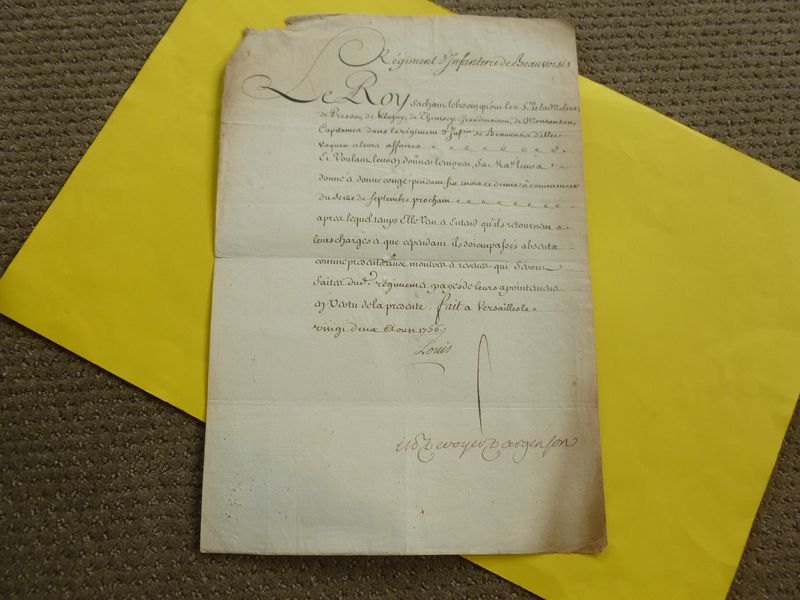 Régiment d'Infanterie de Beauvoisis
Le Roy Sachant le besoin qu'ont les S.rs de la Moliere,
de Pressac, de Clugny, de Grandmaison, de
Capitaines dans le régiment d'Inf.rie de Beauvoisis d'aller
vaquer a leurs affaires
Et Voulant leur en donner le moyen, Sa Ma.té leur a
donné & donne congé pendant six mois et demis a commencer
du Seize de Septembre prochain
apres lequel temps Elle Veut & Entend qu'ils retournent a
leurs charges & que cependant ils soient passés absents
comme presents aux montres & reveues qui Seront
faites dud. régiment & payés de leurs apointemens
en Vertu de la presente. fait a Versailles le
vingt deux Aoust 1756.
Louis
M. P. de Voyer d'Argenson